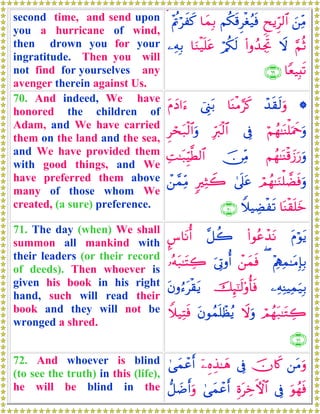 second time, and send upon
you a hurricane of wind,
then drown you for your
ingratitude. Then you will
not find for yourselves any
avenger therein against Us.
مِّنَ ٱلرِّيحِ فَيُغْرِقَكُم بِمَا كَفَرْتُمْ ۙ
ثُمَّ لَا تَجِدُوا۟ لَكُمْ عَلَيْنَا بِهِۦ
تَبِيعًا ﴿٦٩﴾
70. And indeed, We have
honored the children of
Adam, and We have carried
them on the land and the sea,
and We have provided them
with good things, and We
have preferred them above
many of those whom We
created, (a sure) preference.
۞ وَلَقَدْ كَرَّمْنَا بَنِىٓ ءَادَمَ
وَحَمَلْنَـٰهُمْ فِى ٱلْبَرِّ وَٱلْبَحْرِ
وَرَزَقْنَـٰهُم مِّنَ ٱلطَّيِّبَـٰتِ
وَفَضَّلْنَـٰهُمْ عَلَىٰ كَثِيرٍ مِّمَّنْ
خَلَقْنَا تَفْضِيلًا ﴿٧٠﴾
71. The day (when) We shall
summon all mankind with
their leaders (or their record
of deeds). Then whoever is
given his book in his right
hand, such will read their
book and they will not be
wronged a shred.
يَوْمَ نَدْعُوا۟ كُلَّ أُنَاسٍۭ
بِإِمَـٰمِهِمْ ۖ فَمَنْ أُوتِىَ كِتَـٰبَهُۥ
بِيَمِينِهِۦ فَأُو۟لَـٰٓئِكَ يَقْرَءُونَ
كِتَـٰبَهُمْ وَلَا يُظْلَمُونَ فَتِيلًا
﴿٧١﴾
72. And whoever is blind
(to see the truth) in this (life),
he will be blind in the
وَمَن كَانَ فِى هَـٰذِهِۦٓ أَعْمَىٰ
فَهُوَ فِى ٱلْـَٔاخِرَةِ أَعْمَىٰ وَأَضَلُّ